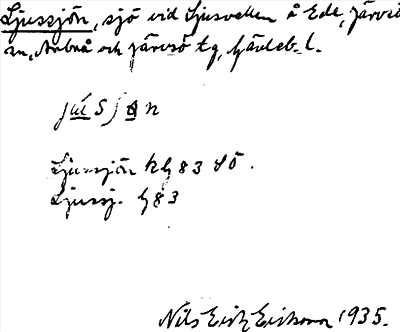 Ljussjön, sjö vid Ljusvallen å Ede, Järvsö
sn, Arbrå och Järvsö tg, Gävleb. l.
Ljussjön kg 83 SÖ.
Ljussj. G 83
Nils Erik Eriksson 1935.